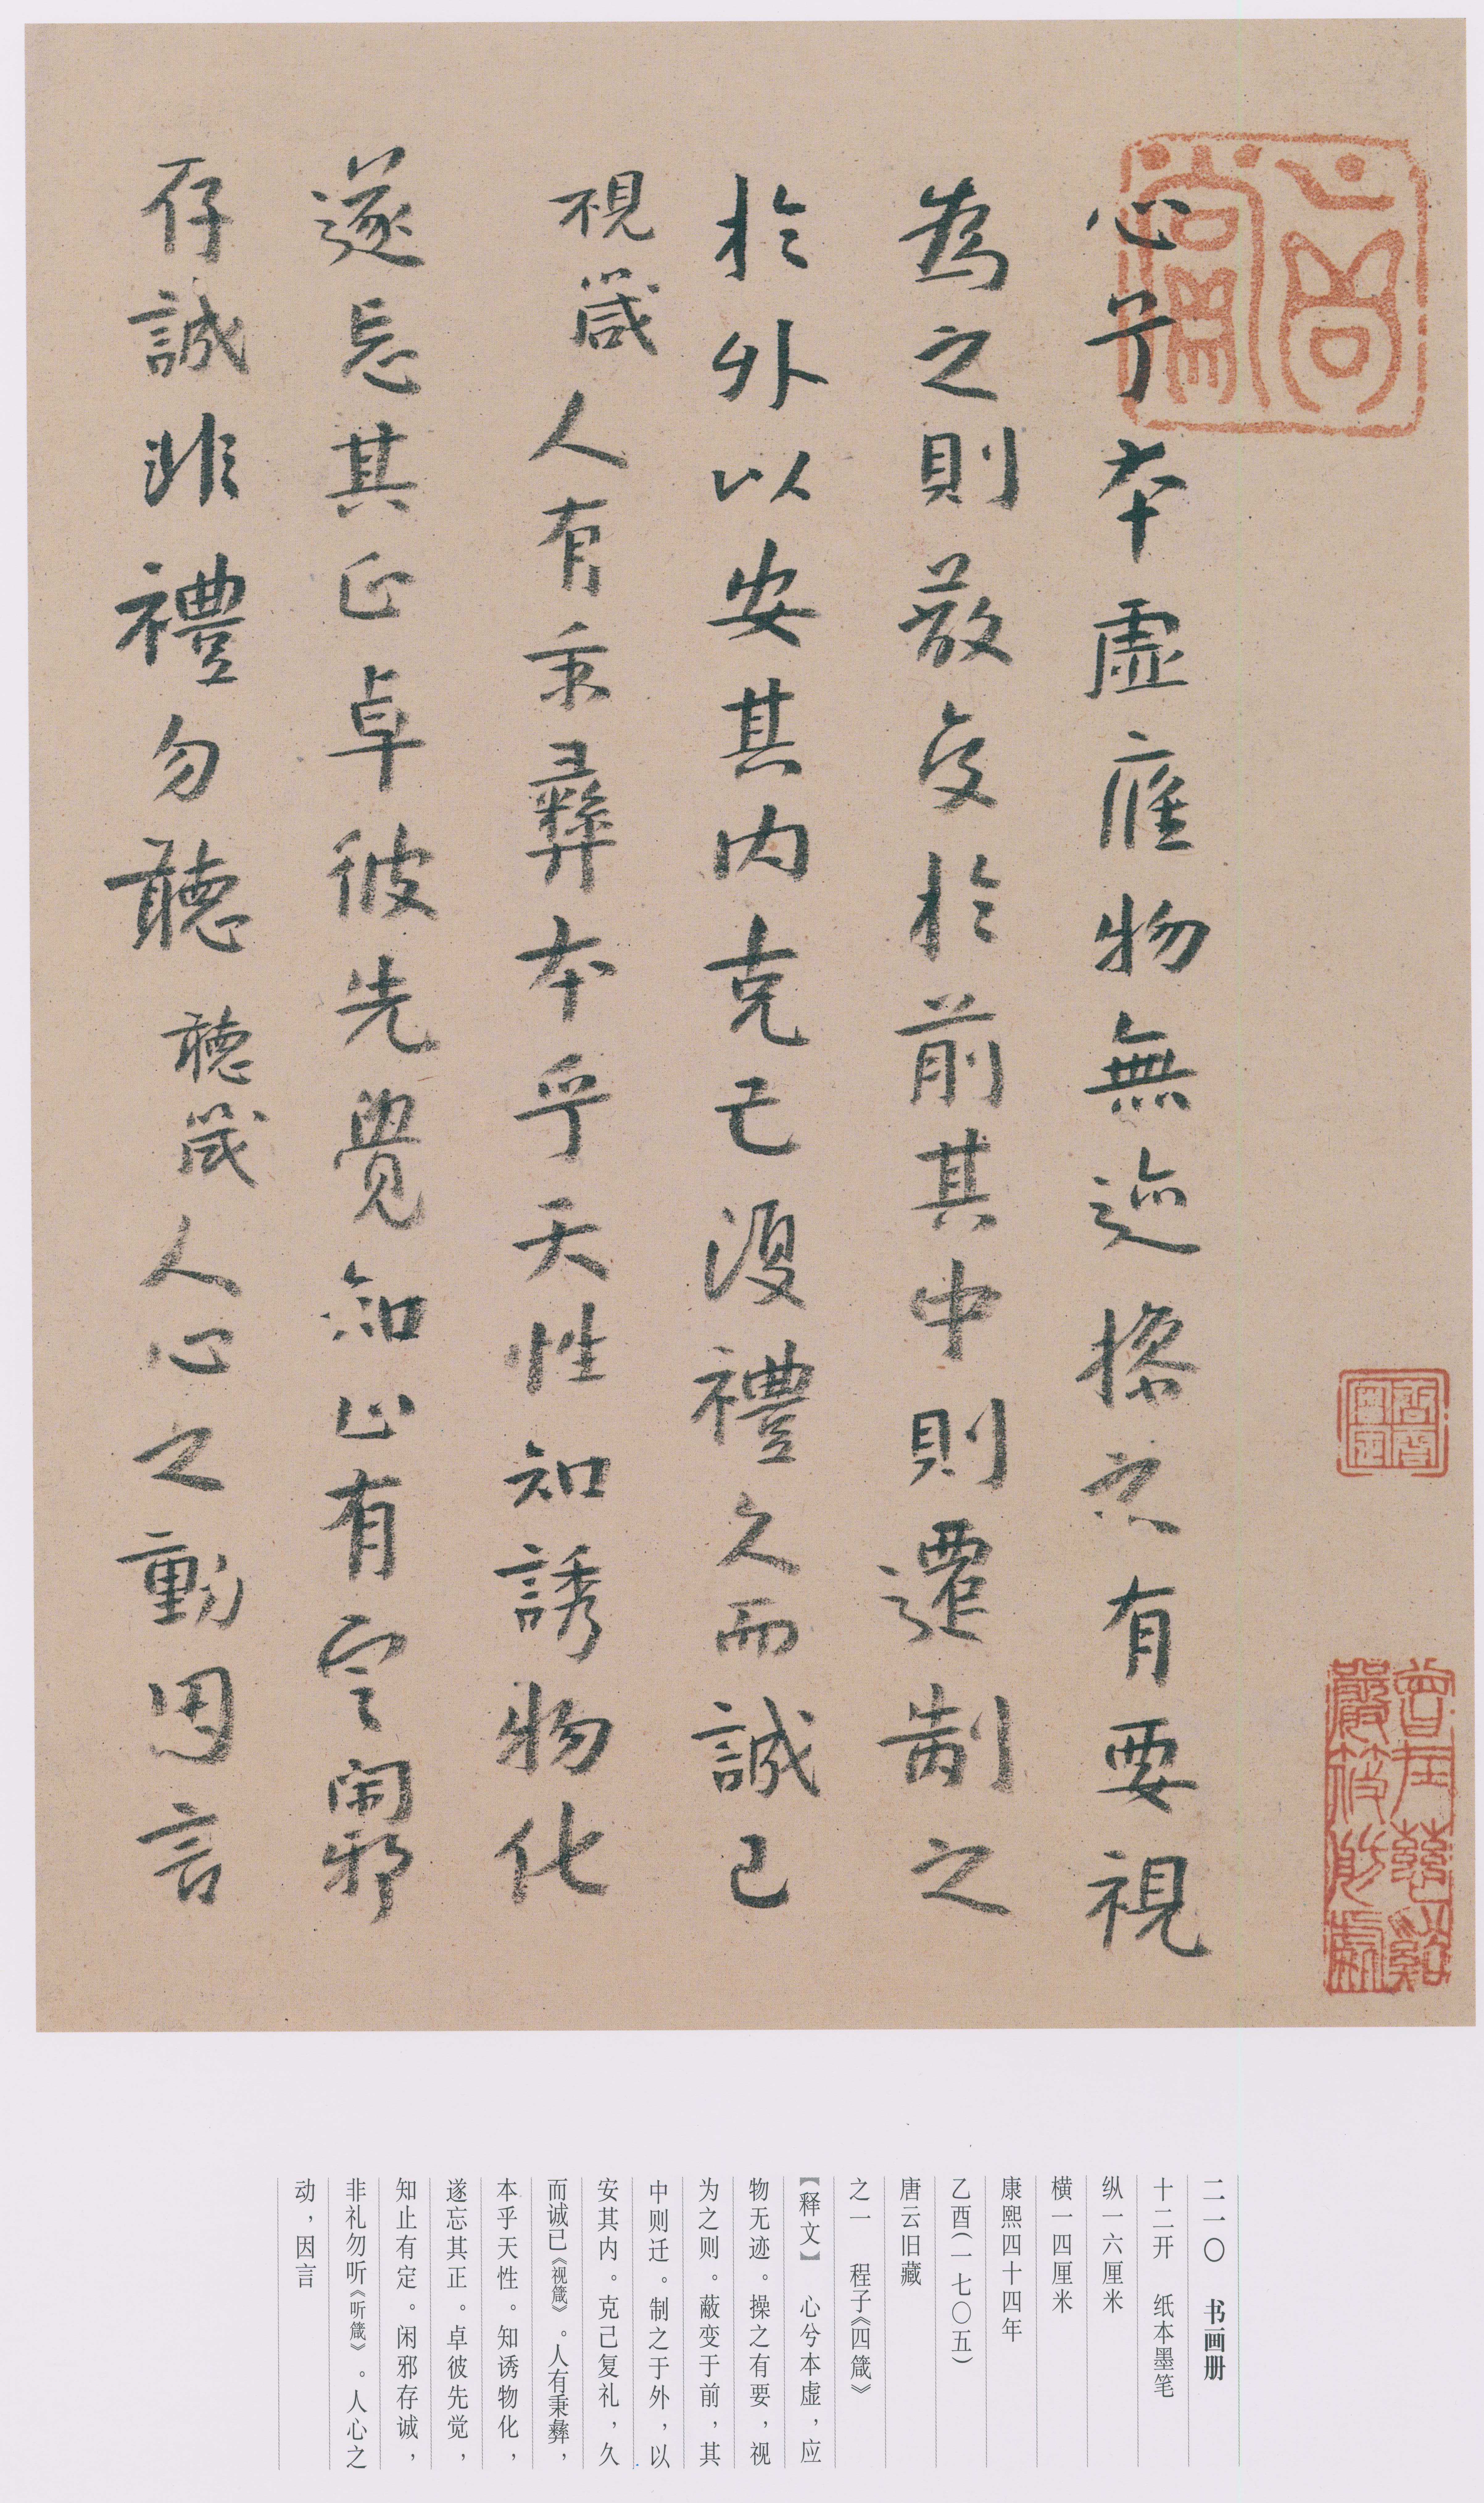 心兮本虛應物無迹操之有要視
為之則蔽交於前其中則遷制之
於外以安其內克己復禮久而誠已
視箴人有秉彝本乎天性知誘物化
遂忘其正卓彼先覺知止有定閑邪
存誠非禮勿聽聽箴人心之動因言
二一〇 书画册
十二开 纸本墨笔
纵一六厘米
横一四厘米
康熙四十四年
乙酉(一七〇五)
唐云旧藏
之一 程子《四箴》
【释文】 心兮本虚，应
物无迹。操之有要，视
为之则。蔽变于前，其
中则迁。制之于外，以
安其内。克己复礼，久
而诚已《视箴》。人有秉彝，
本乎天性。知诱物化，
遂忘其正。卓彼先觉，
知止有定。闲邪存诚，
非礼勿听《听箴》。人心之
动，因言